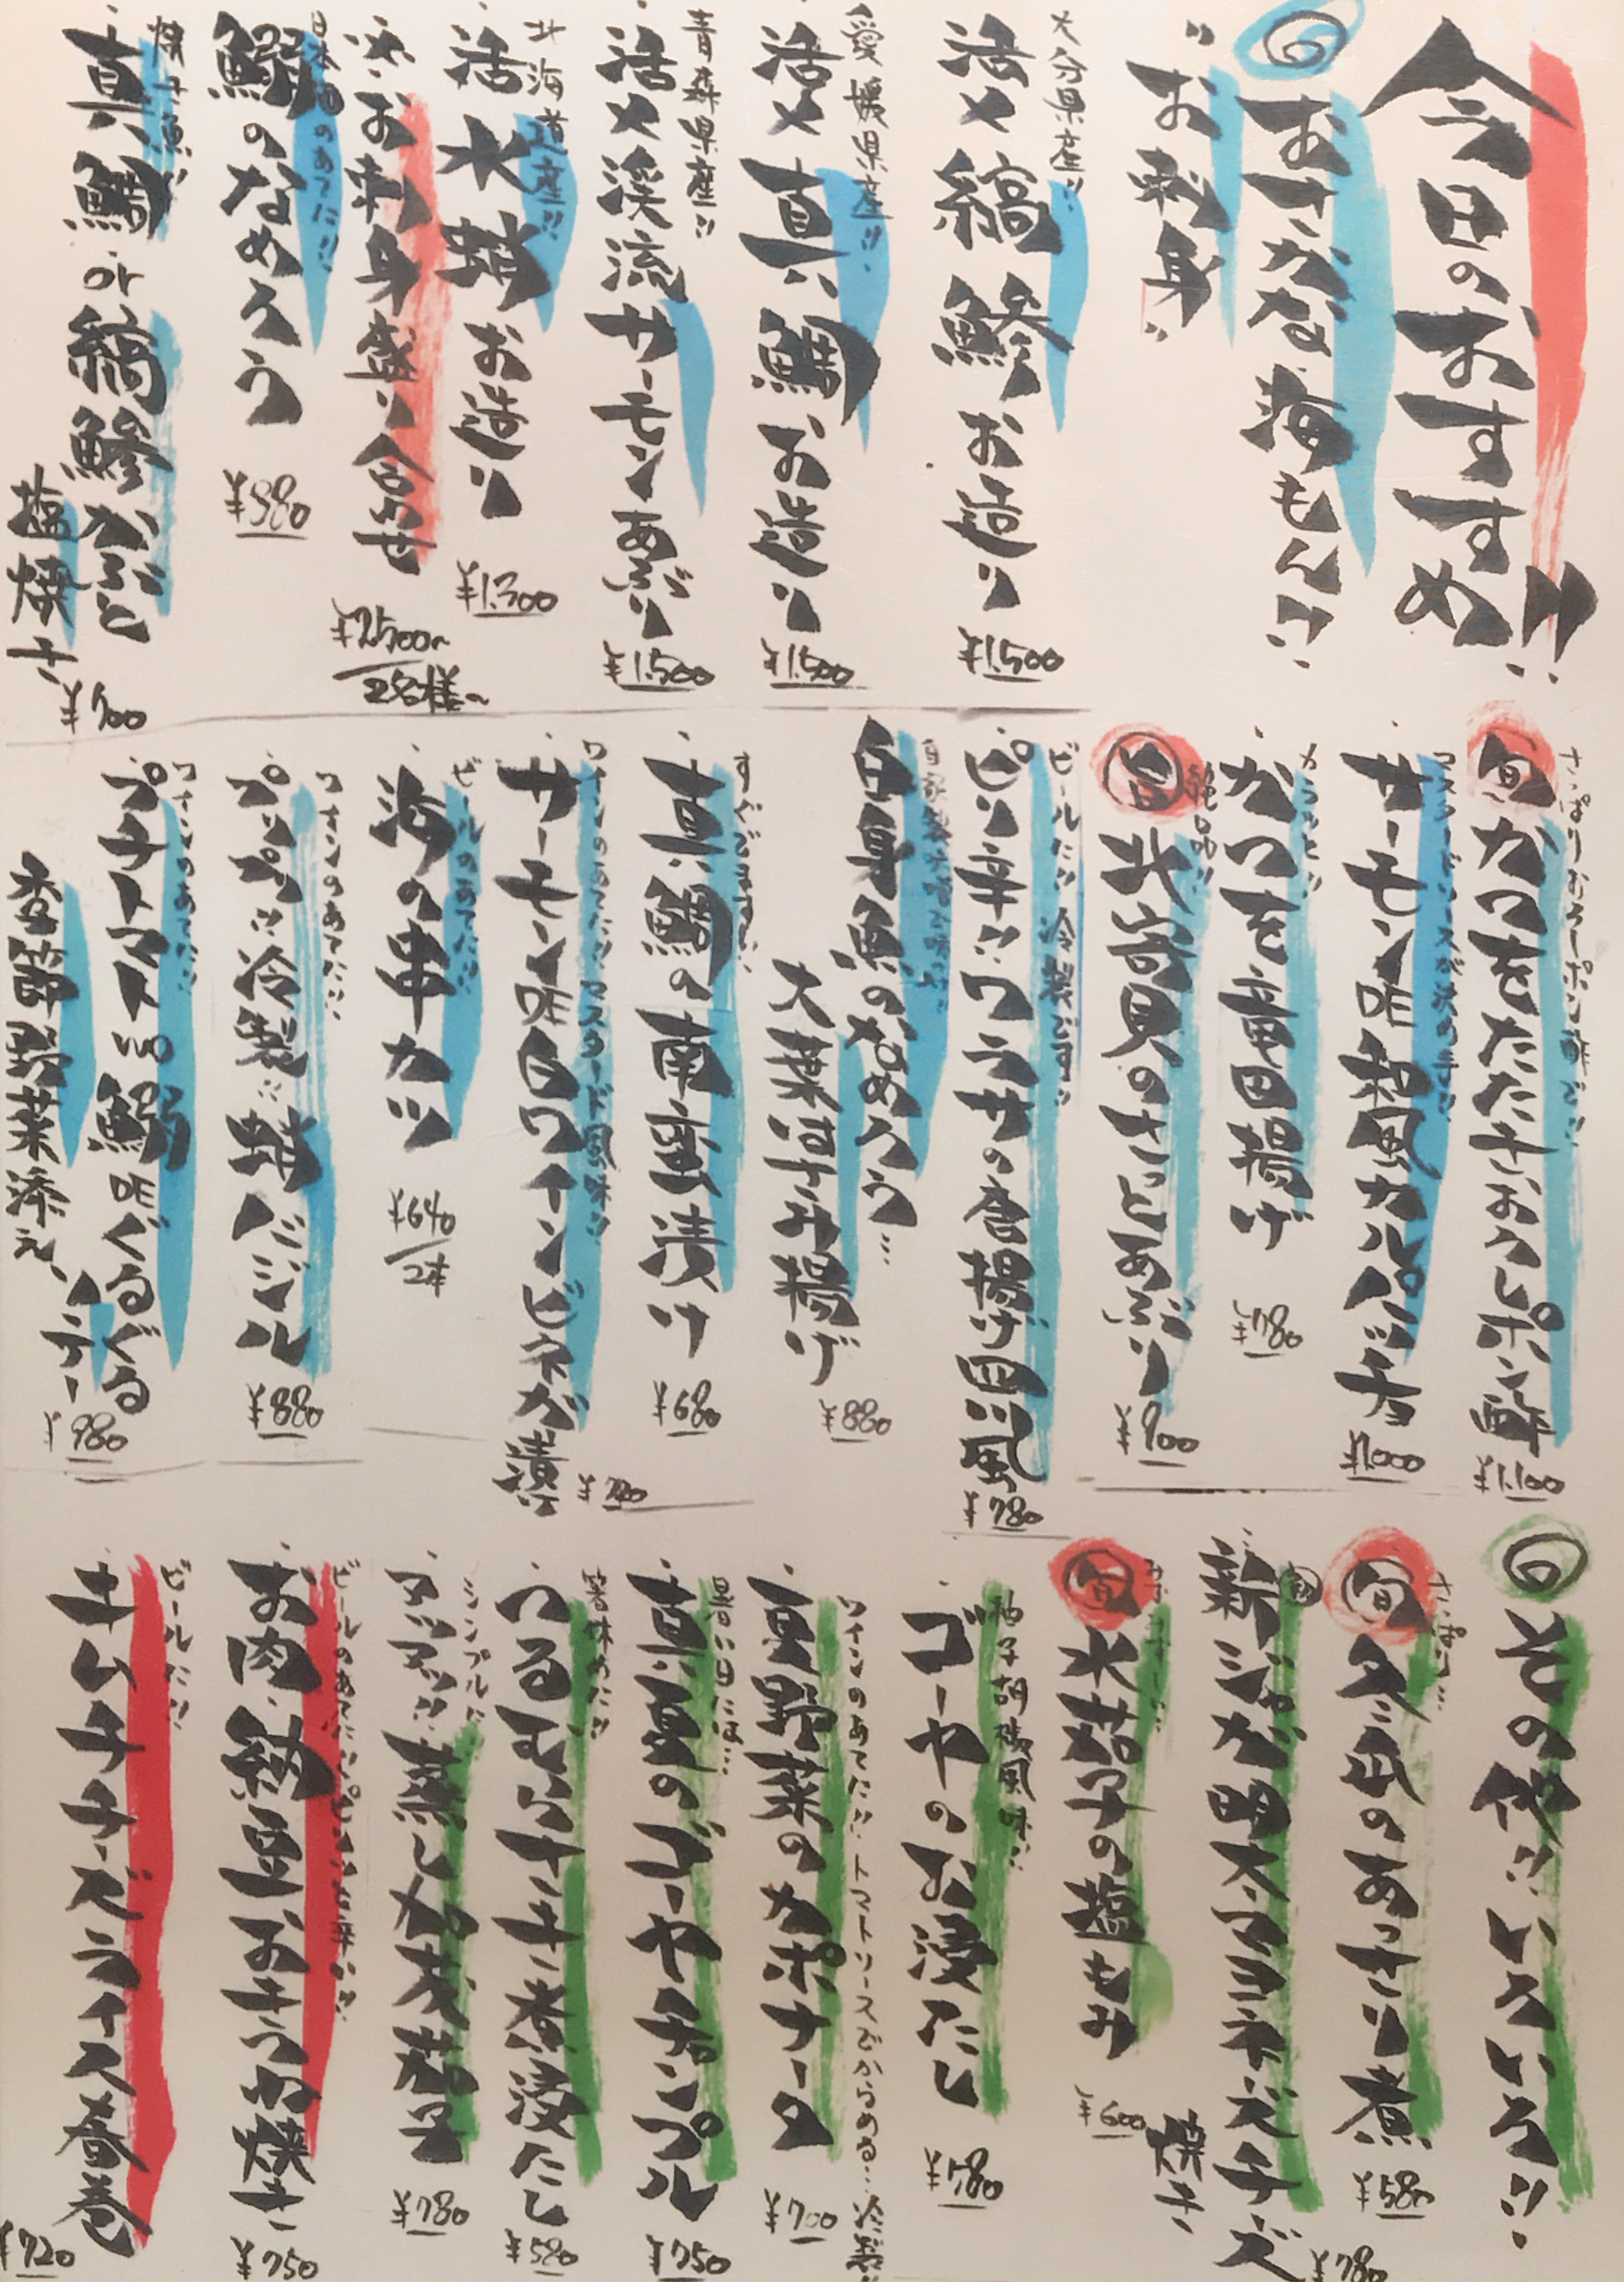 今日のおすすめ!!
◎おさかな・海もん!!
"お刺身"
大分県産!!
活〆縞鯵お造り
¥1,500
愛媛県産!!
活〆真鯛お造り
¥1,500
青森県産!!
活〆渓流サーモンあぶり
¥1,500
北海道産!!
活水蛸お造り
¥1,300
お刺身盛り合わせ
¥2,500〜
2名様〜
日本酒のあてに!!
鰯のなめろう
¥980
真鯛or縞鯵かぶと
塩焼き
¥900
さっぱりおろしポン酢で!!
旬 かつをたたきおろしポン酢
¥1,100
マスタードソースが決め手!!
サーモン味和風カルパッチョ
¥1,000
カラッと!!
かつを竜田揚げ
¥780
絶品!!
北寄貝のさっとあぶり
¥900
ビールに!! 冷製です!!
ピリ辛!!ワラサの唐揚げ四川風
¥780
白身魚のなめろう…
大葉はさみ揚げ
¥880
すぐでます!!
真鯛の南蛮漬け
¥680
ワインのあてに!! マスタード風味!!
サーモン味白ワインビネガ漬け
¥720
ビールのあてに!!
海の串カツ
¥640
2本
ワインのあてに!!
プリプリ!!冷製!!蛸バジル
¥880
ワインのあてに!!
プチトマトの鰯味ぐるぐる
香草野菜添え
ソテー
¥980
◎その他!!いろいろ!!
さっぱり…
旬 冬瓜のあっさり煮
¥580
旬
新ジャガ明太マヨネーズチーズ
焼き
¥780
旬 水茄子の塩もみ
¥600
柚子胡椒風味!!
ゴーヤのお浸し
¥580
ワインのあてに!! トマトソースでからめる… 冷製!!
夏野菜のカポナータ
¥700
暑い日には…
真夏のゴーヤチャンプル
¥750
つるむらさき煮浸たし
¥580
シンプルに
アツアツ!!蒸し加茂茄子
¥780
お肉・納豆おきつね焼き
¥750
ビールに!!
キムチチーズライス春巻
¥720